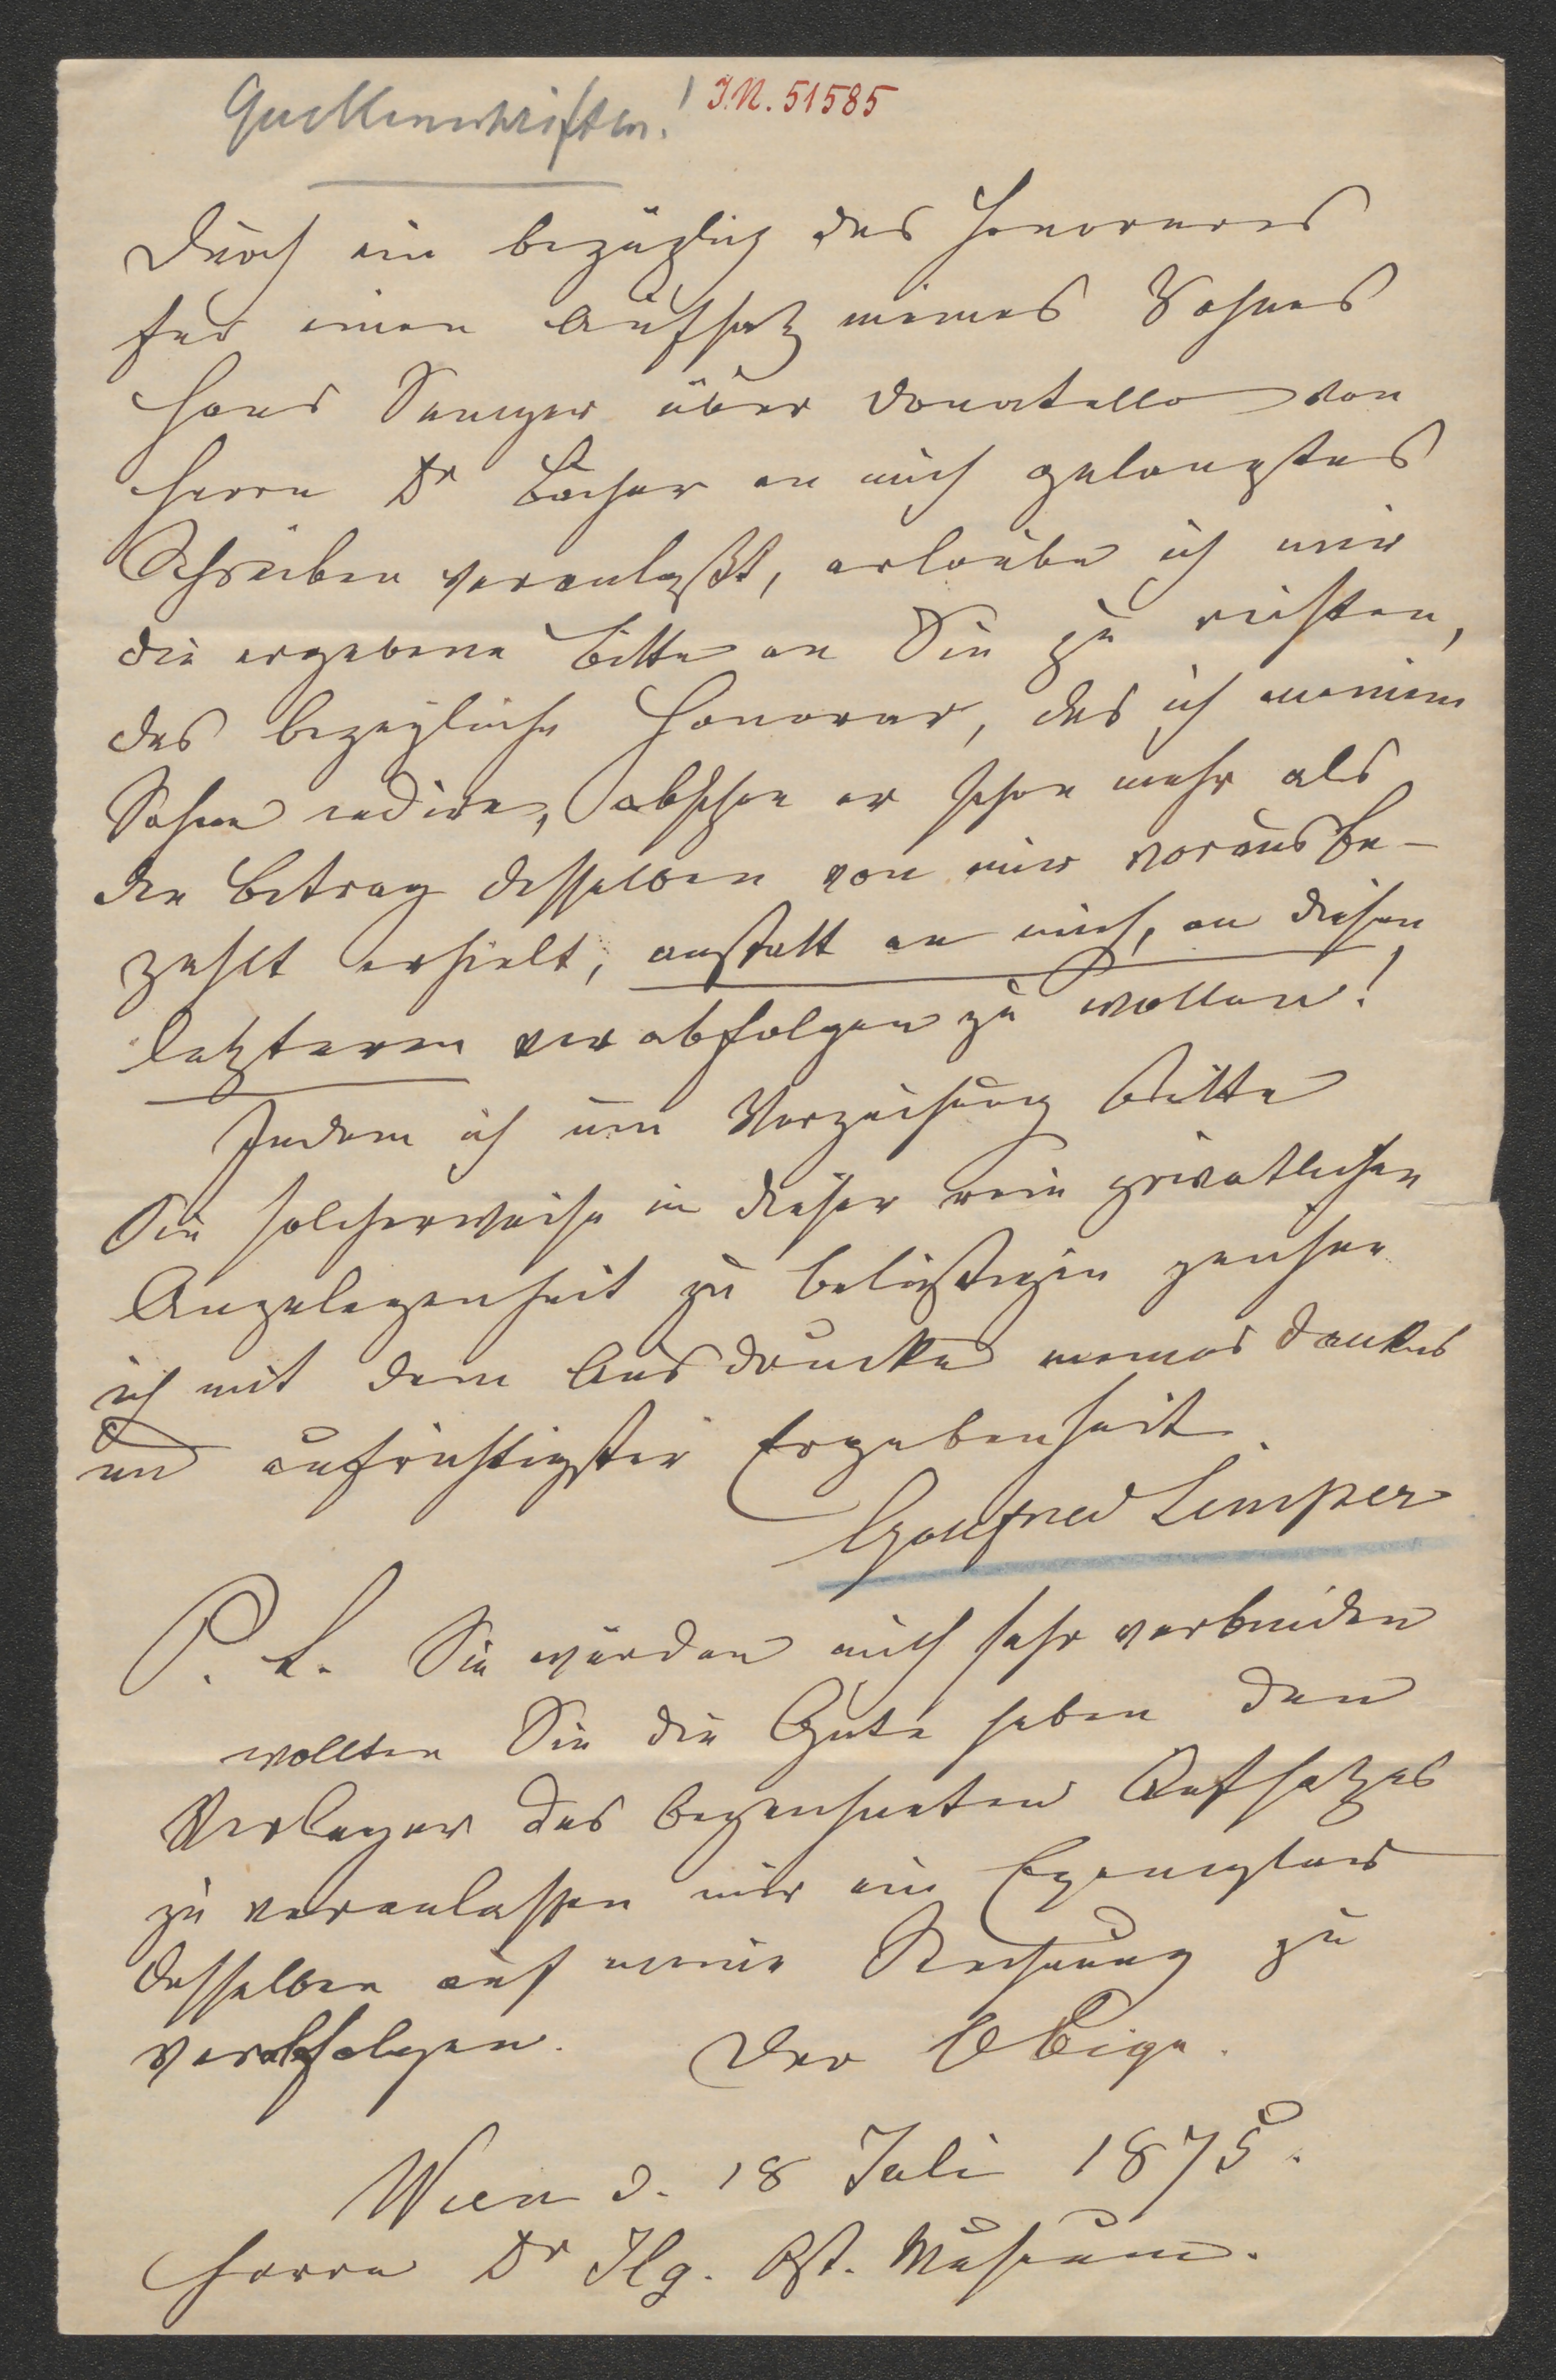 Quellenschriften! I.N. 51585
Durch ein bezüglich des Honorares
für einen Aufsatz meines Sohnes
Hans Semper über Donatello von
Herrn Dr Bucher an mich gelangtes
Schreiben veranlaßt, erlaube ich mir
die ergebene Bitte an Sie zu richten,
das bezügliche Honorar, das ich meinem
Sohne cedire, obschon er schon mehr als
den Betrag desselben von mir vorausbe-
zahlt erhielt, anstatt an mich, an diesen
letzteren verabfolgen zu wollen!
Indem ich um Verzeihung bitte
Sie solcherweise in dieser rein privatlichen
Angelegenheit zu belästigen zeichne
ich mit dem Ausdrucke meines Dankes
und aufrichtigster Ergebenheit
Gottfried Semper
P. S. Sie würden mich sehr verbinden
wollten Sie die Güte haben den
Verleger des bezeichneten Aufsatzes
zu veranlassen mir ein Exemplar
desselben auf meine Rechnung zu
verabfolgen. Der Obige.
Wien d. 18 Juli 1875.
Herrn Dr Ilg. Öst. Museum.